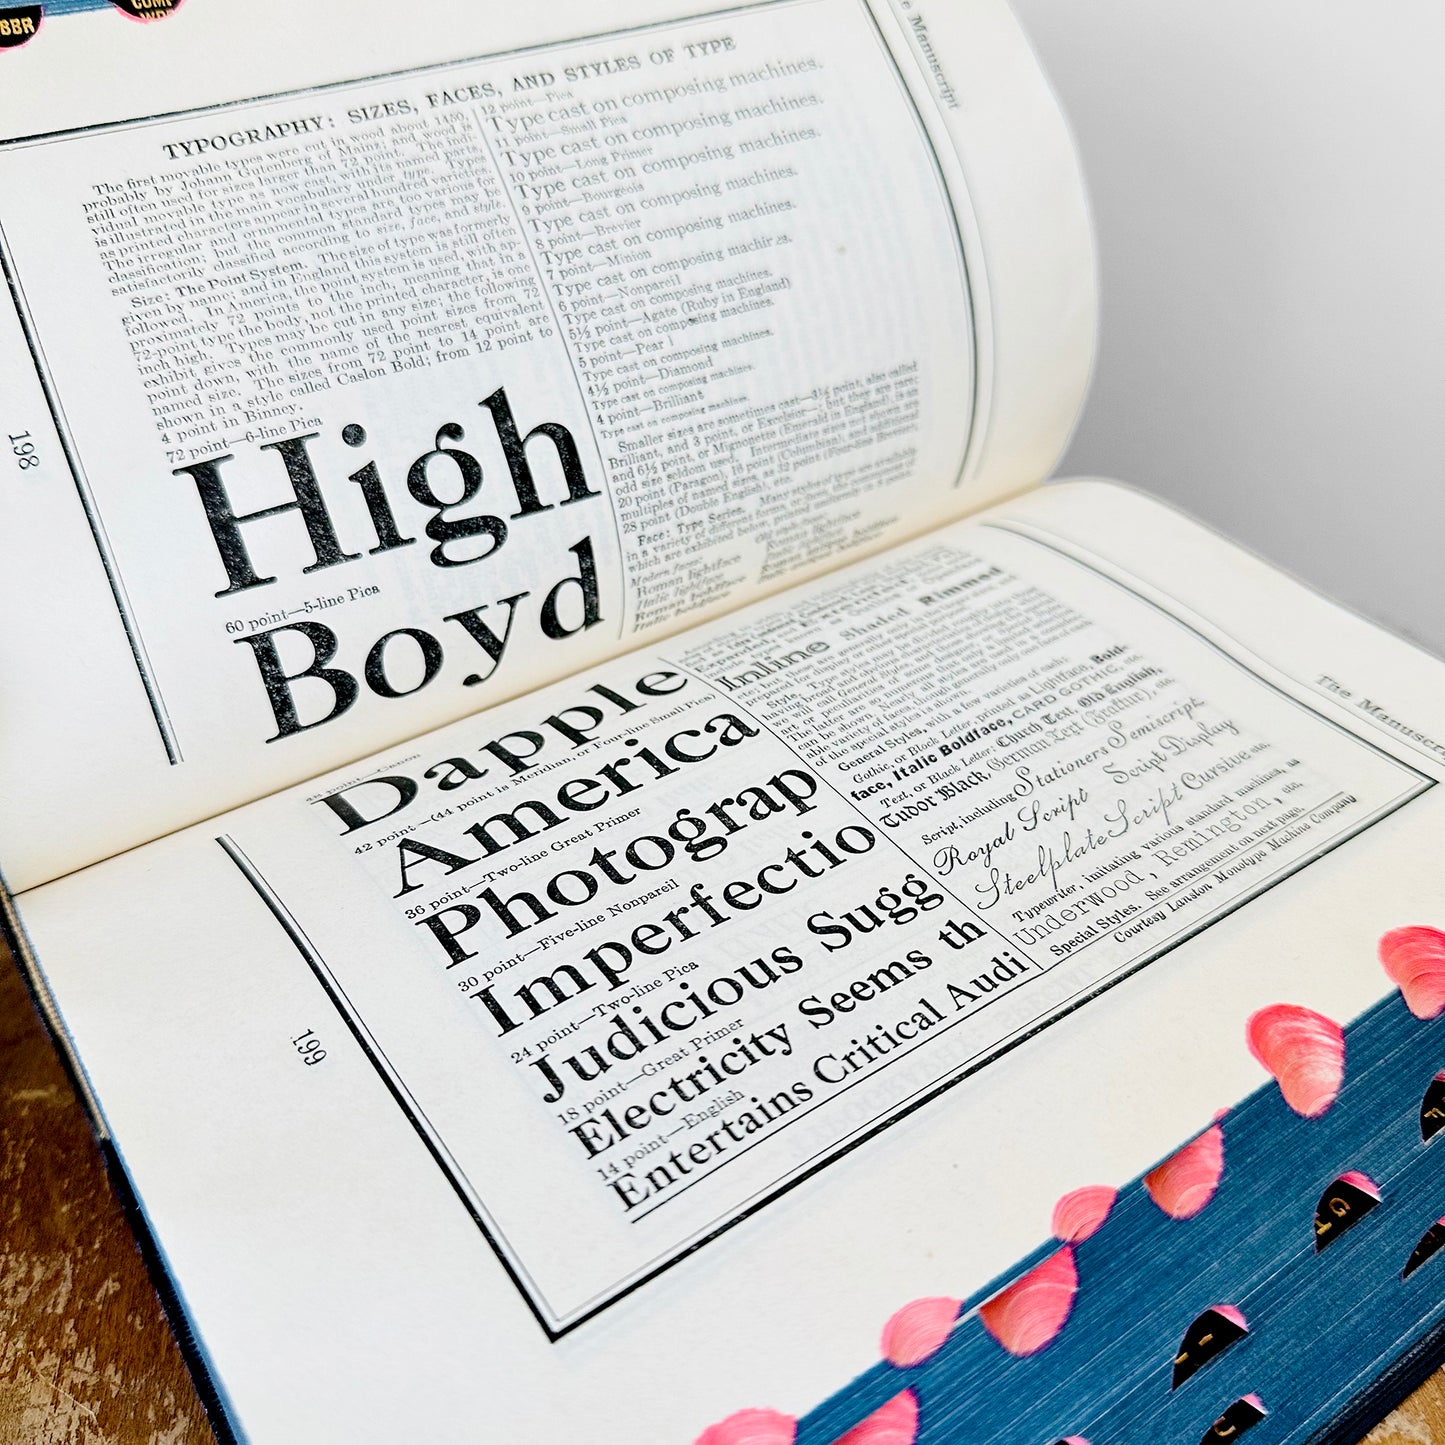 BBR
TYPOGRAPHY: SIZES, FACES, AND STYLES OF TYPE
The first movable types were cut in wood about 1450,
probably by Johann Gutenberg of Mainz; and wood is
still often used for sizes larger than 72 point. The indi-
vidual movable type as now cast, with its named parts,
is illustrated in the main vocabulary under type. Types
as printed characters appear in several hundred varieties.
The irregular and ornamental types are too various for
classification; but the common standard types may be
satisfactorily classified according to size, face, and style.
Size: The Point System. The size of type was formerly
given by name; and in England this system is still often
followed. In America, the point system is used, with ap-
proximately 72 points to the inch, meaning that in a
72-point type the body, not the printed character, is one
inch high. Types may be cut in any size; the following
exhibit gives the commonly used point sizes from 72
point down, with the name of the nearest equivalent
named size. The sizes from 72 point to 14 point are
shown in a style called Caslon Bold; from 12 point to
4 point in Binney.
72 point—6-line Pica
High
60 point—5-line Pica
Boyd
12 point—Pica
Type cast on composing machines.
11 point—Small Pica
Type cast on composing machines.
10 point—Long Primer
Type cast on composing machines.
9 point—Bourgeois
Type cast on composing machines.
8 point—Brevier
Type cast on composing machines.
7 point—Minion
Type cast on composing machines.
6 point—Nonpareil
Type cast on composing machines.
5½ point—Agate (Ruby in England)
Type cast on composing machines.
5 point—Pearl
Type cast on composing machines.
4½ point—Diamond
Type cast on composing machines.
4 point—Brilliant
Type cast on composing machines.
Smaller sizes are sometimes cast—3½ point, also called
Brilliant, and 3 point, or Excelsior—; but they are rare;
and 6½ point, or Mignonette (Emerald in England), is an
odd size seldom used. Intermediate sizes not shown are
20 point (Paragon), 16 point (Columbian), and additional
multiples of named sizes, as 32 point (Four-line Brevier),
28 point (Double English), etc.
Face: Type Series. Many styles of type are available
in a variety of different forms, or faces, the commonest of
which are exhibited below, printed uniformly in 8 point.
Modern faces:
Roman lightface
Italic lightface
Roman boldface
Italic boldface
Old style faces:
Roman lightface
Italic lightface
Roman boldface
Italic boldface
198
The Manuscript
48 point—Canon
Dapple
42 point—(44 point is Meridian, or Four-line Small Pica)
America
36 point—Two-line Great Primer
Photograp
30 point—Five-line Nonpareil
Imperfectio
24 point—Two-line Pica
Judicious Sugg
18 point—Great Primer
Electricity Seems th
14 point—English
Entertains Critical Audi
Inline Shaded Rimmed
having broad and obvious
of the special styles is shown.
General Styles, with a few varieties of each:
Gothic, or Block Letter, printed as Lightface, Bold-
face, Italic Boldface, CARD GOTHIC, etc.
Text, or Black Letter: Church Text, Old English,
Tudor Black, German Text (Fraktur), etc.
Script, including Stationers Semiscript
Royal Script Script Display
Steelplate Script Cursive etc.
Typewriter, imitating various standard machines, as
Underwood, Remington, etc.
Special Styles. See arrangement on next page.
Courtesy Lanston Monotype Machine Company
199
The Manuscr